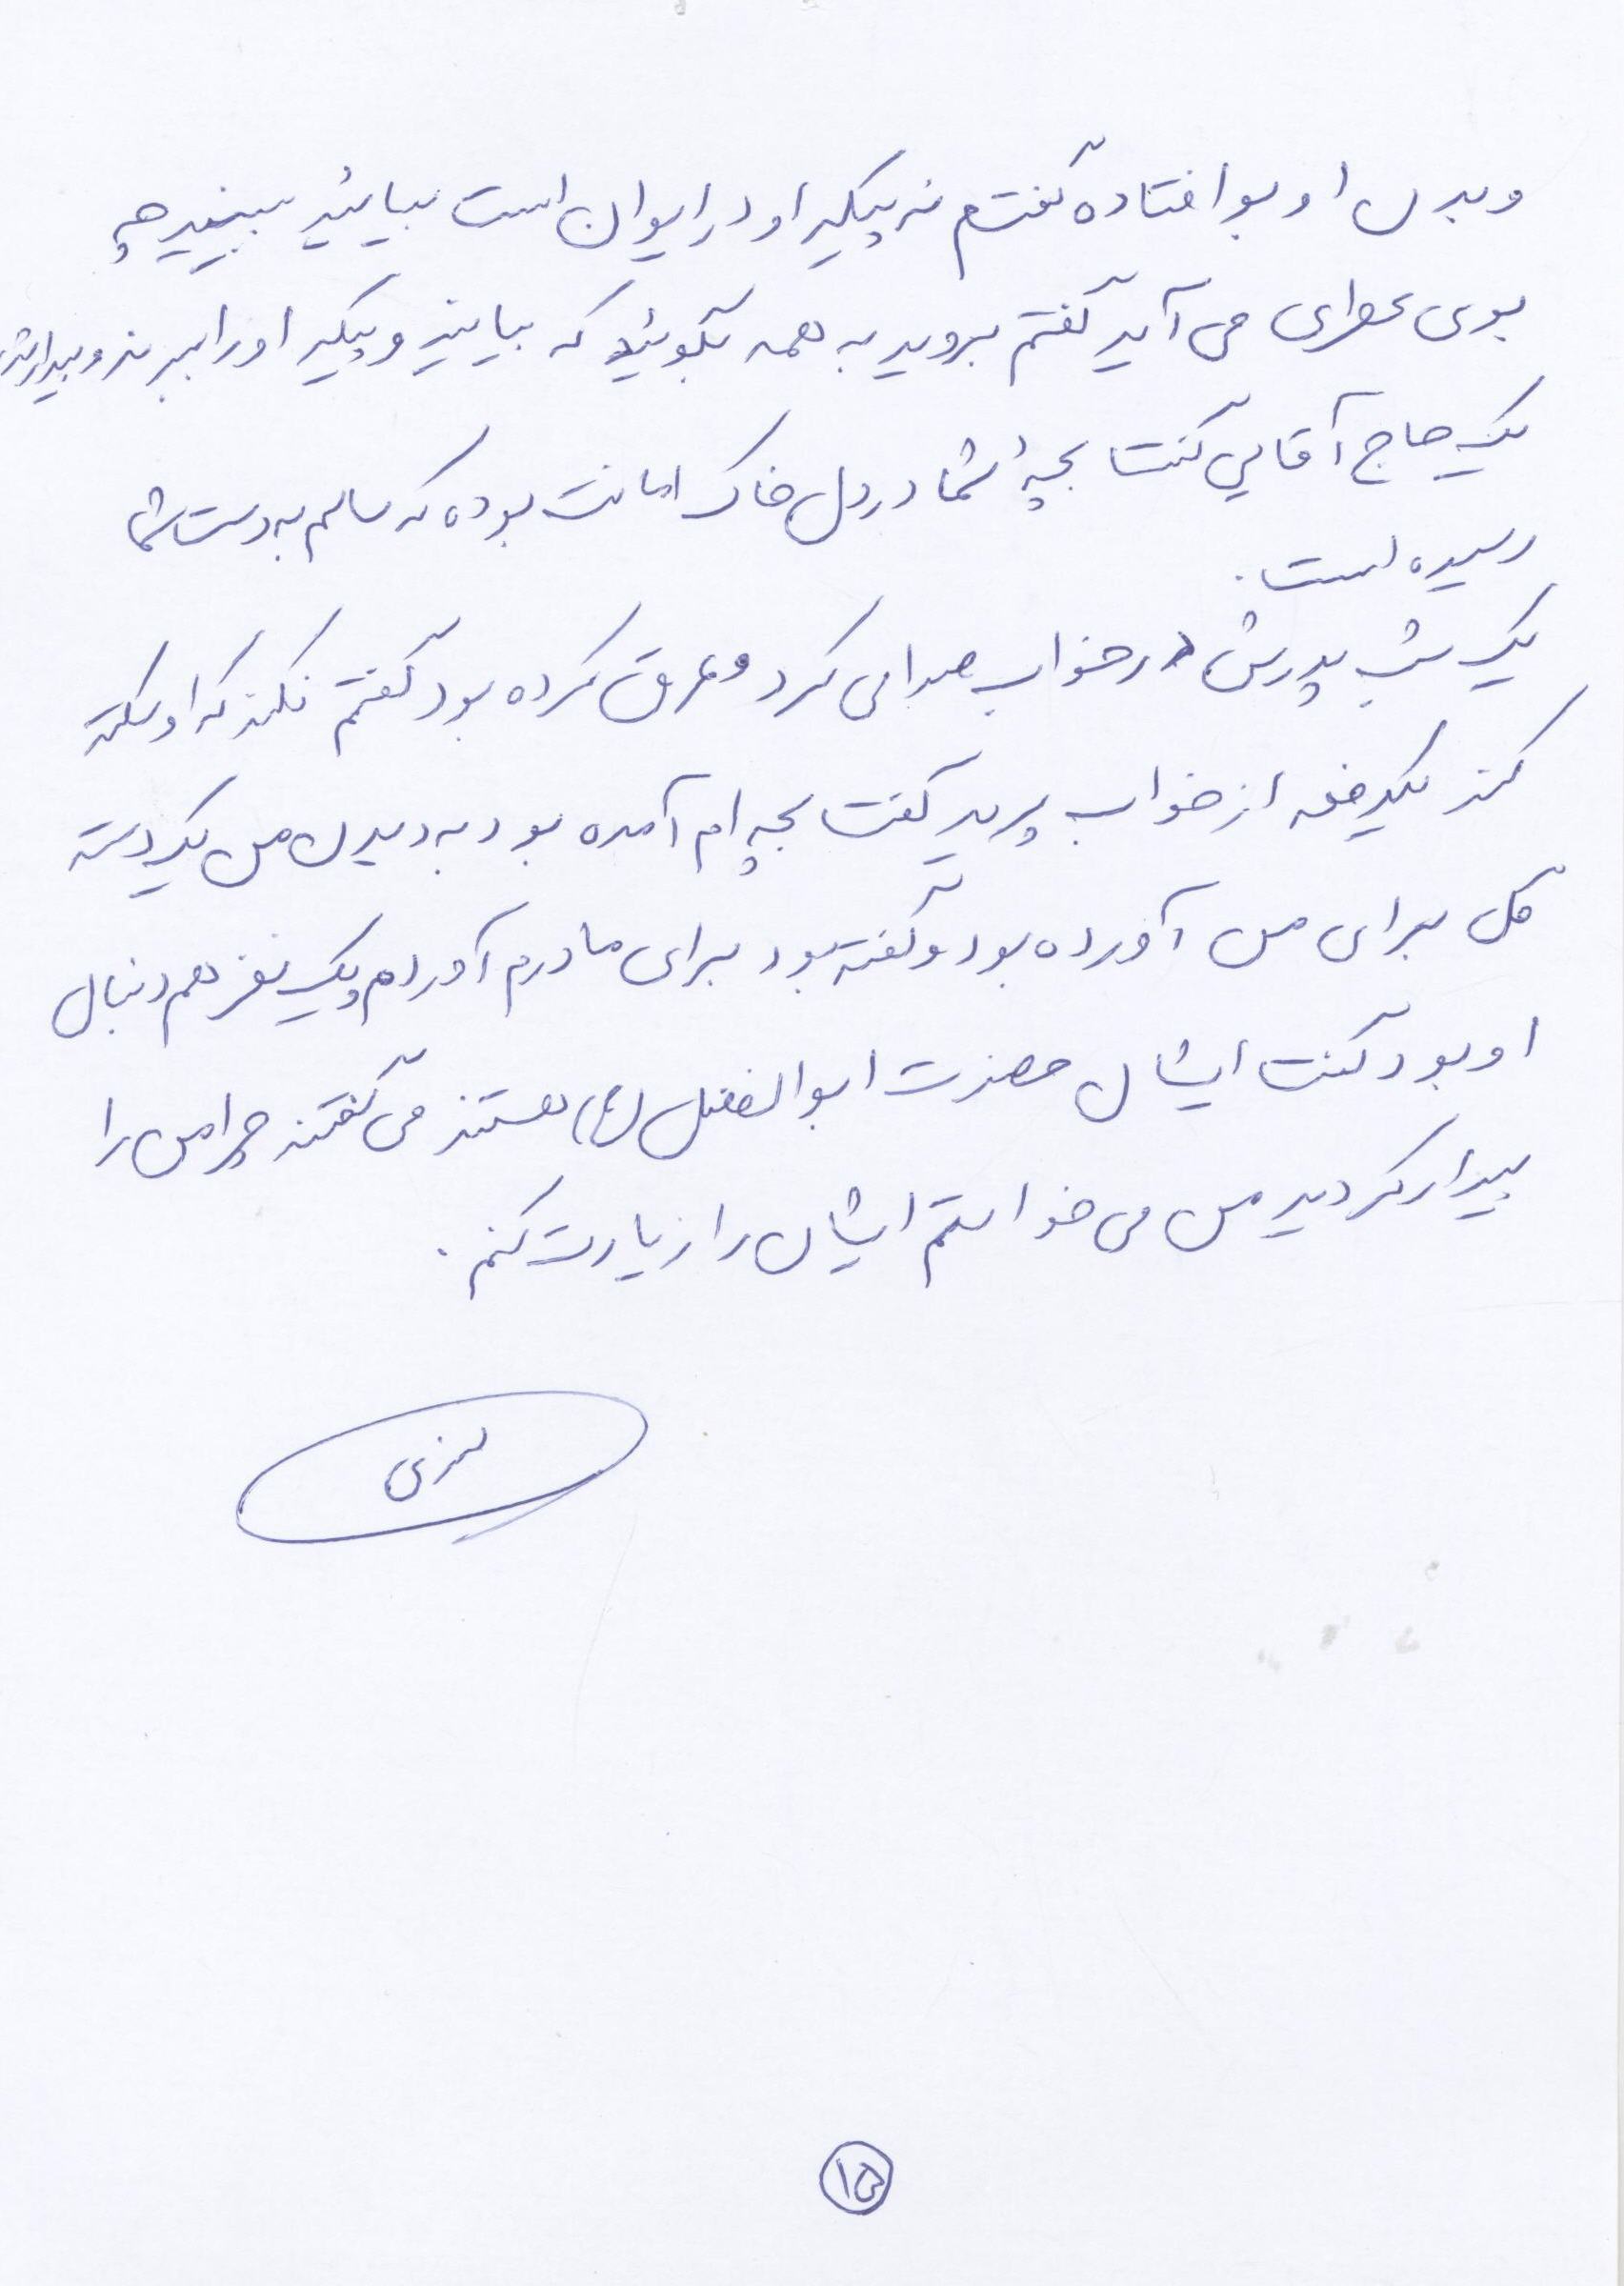 و بدن او بو افتاده گفتم نه پیکر او در ایوان است بیائید ببینید چه
بوی عطری می آید گفتم بروید به همه بگوئید که بیایند و پیکر او را ببرند و
یک حاج آقایی گفت بچهٔ شما در دل خاک امانت بوده که سالم به دست شما
رسیده است.
یک شب پدرش در خواب صدا می کرد و عرق کرده بود گفتم نکند که او سکته
کند یکدفعه از خواب پرید گفت بچه ام آمده بود به دیدن من یکدسته
گل برای من آورده بود و گفته بود برای مادرم آوردم و یک نفر هم دنبال
او بود گفت ایشان حضرت ابوالفضل (ع) هستند می گفتند چرا من را
بیدار کردید من می خواستم ایشان را زیارت کنم.
۱۵